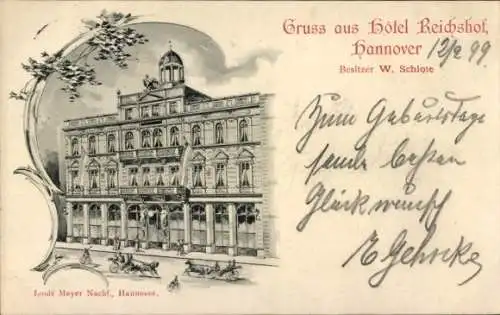 Gruss aus Hôtel Reichshof,
Hannover 12/2 99
Besitzer W. Schlote
Zum Geburtstage
sende besten
Glückwunsch
E Gehrcke
Louis Meyer Nachf., Hannover.